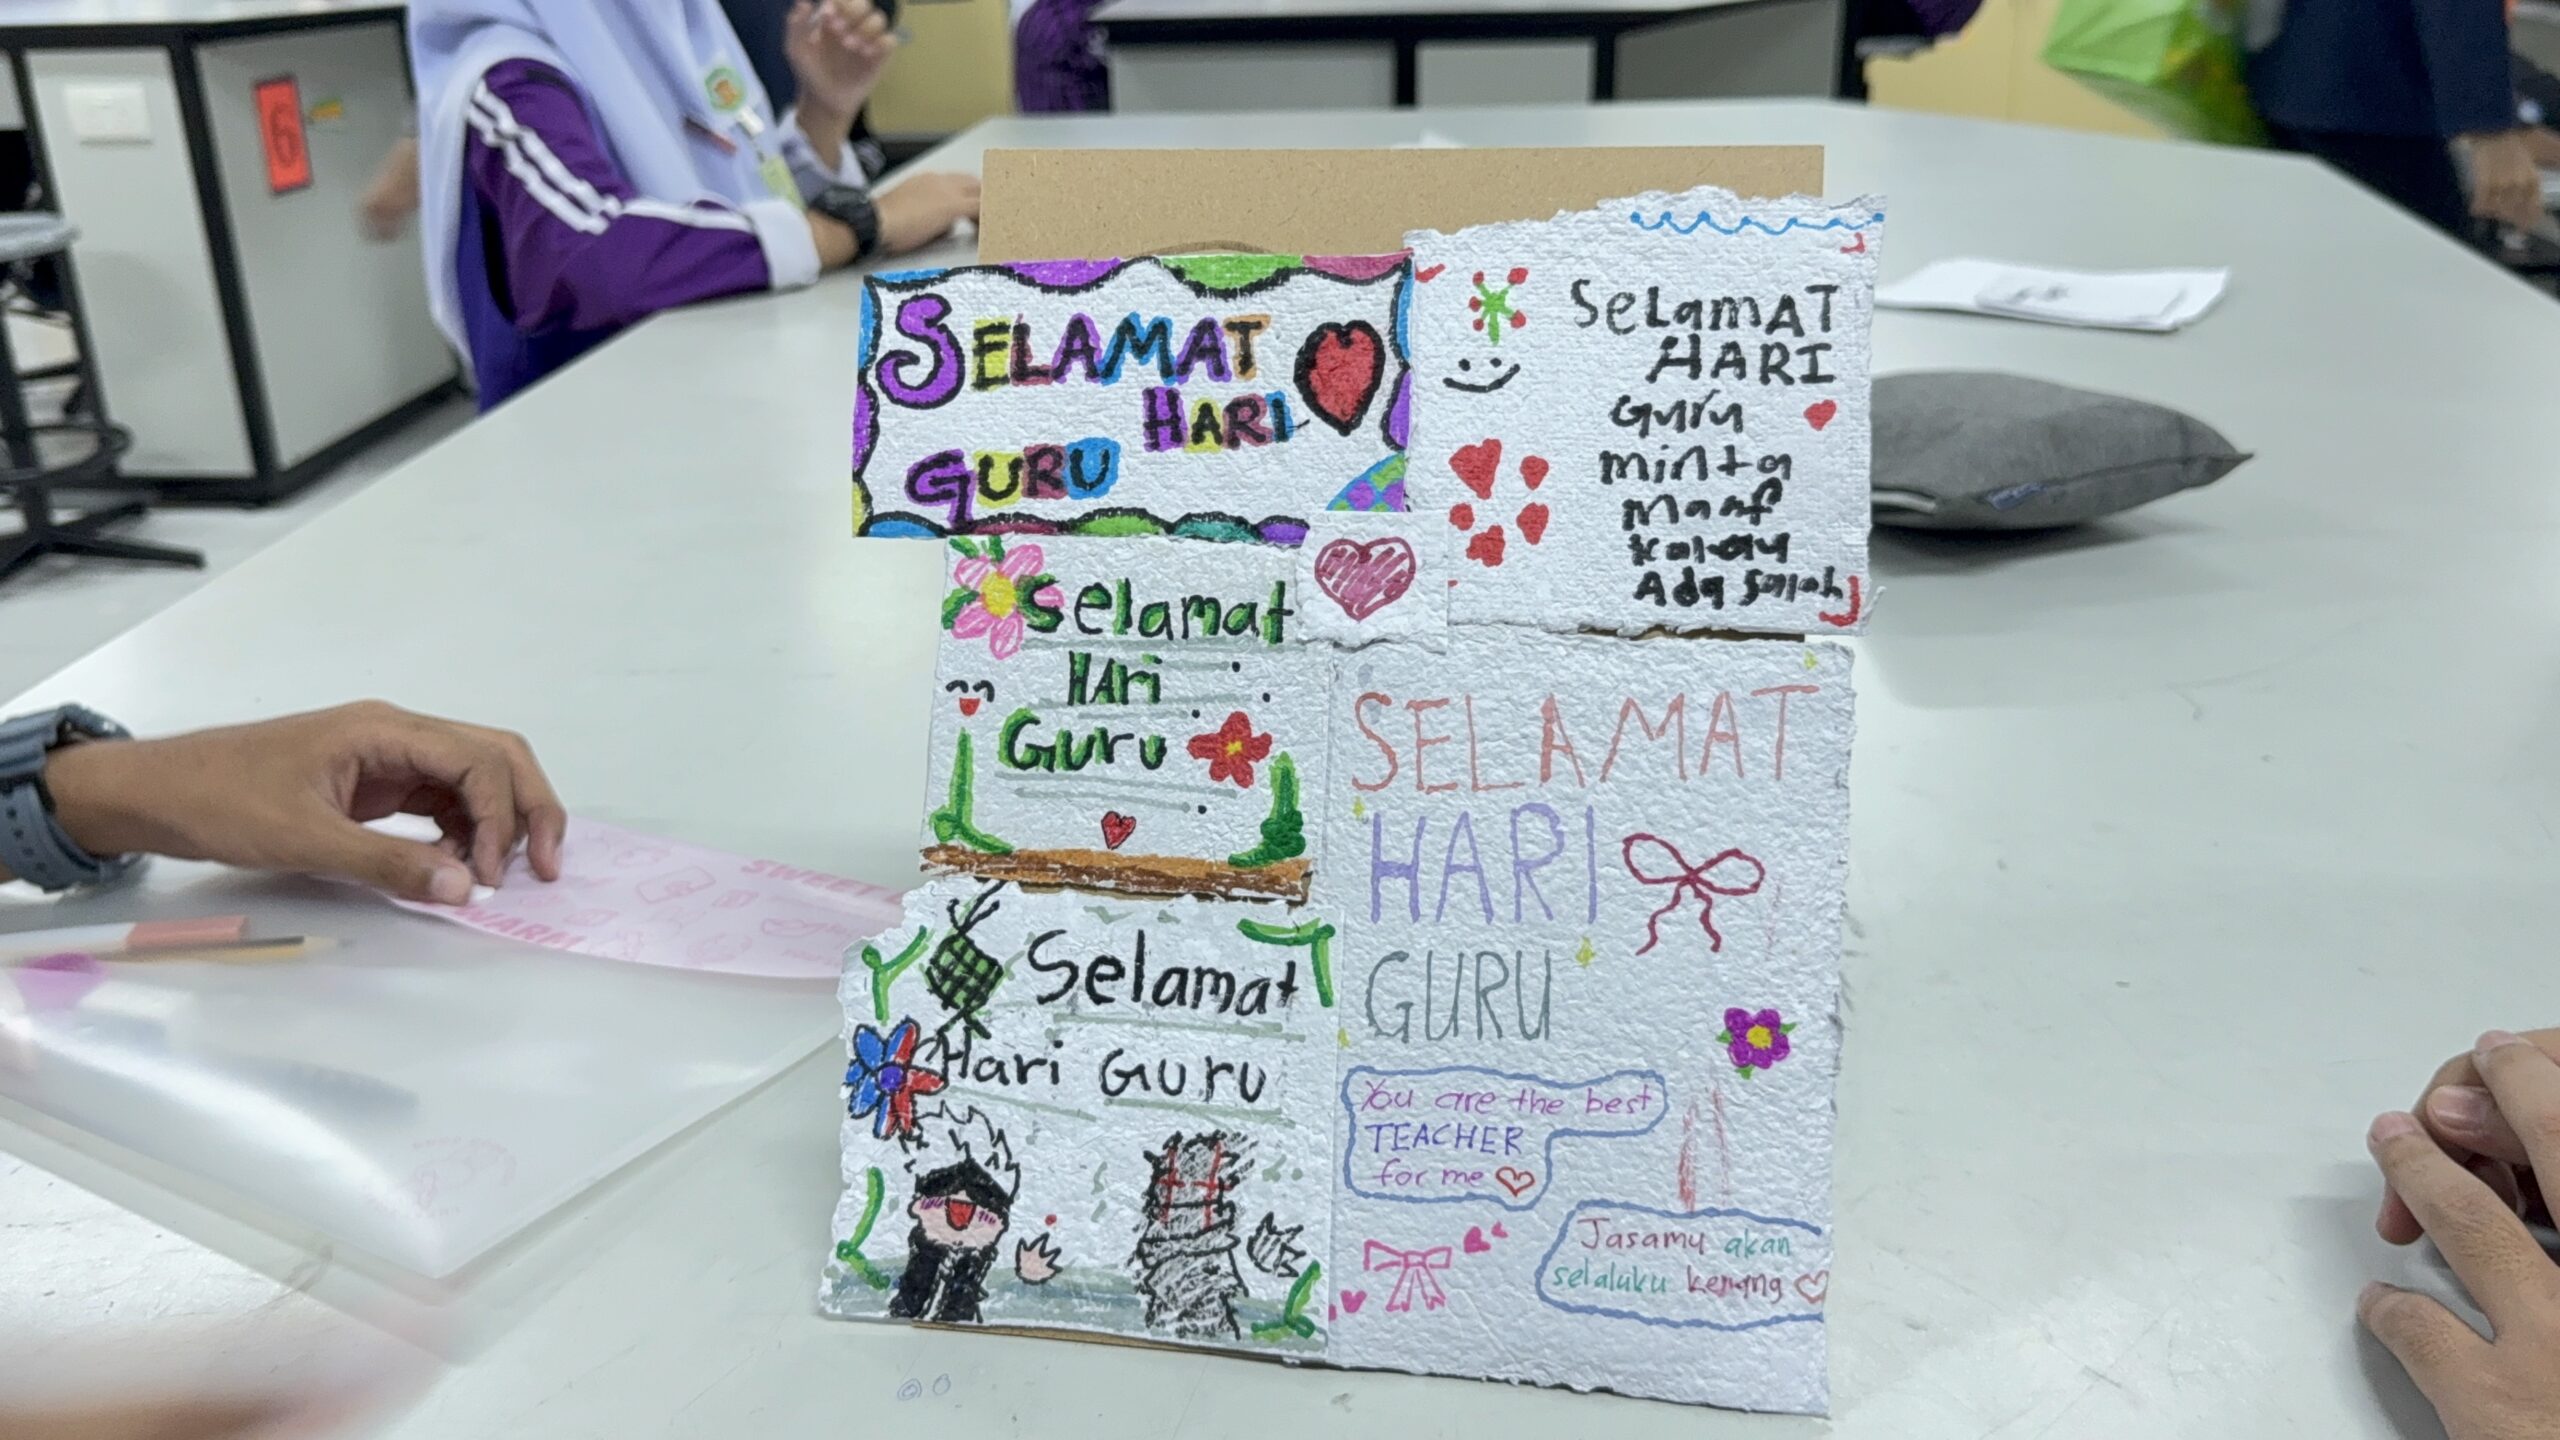 6
SELAMAT
HARI
GURU
SeLamAT
HARI
Guru
minta
Maaf
Kalau
Ada Salah
Selamat
HAri
Guru
SELAMAT
HARI
GURU
You are the best
TEACHER
for me
Jasamu akan
selaluku kenang
Selamat
Hari Guru
SWEET
WARM